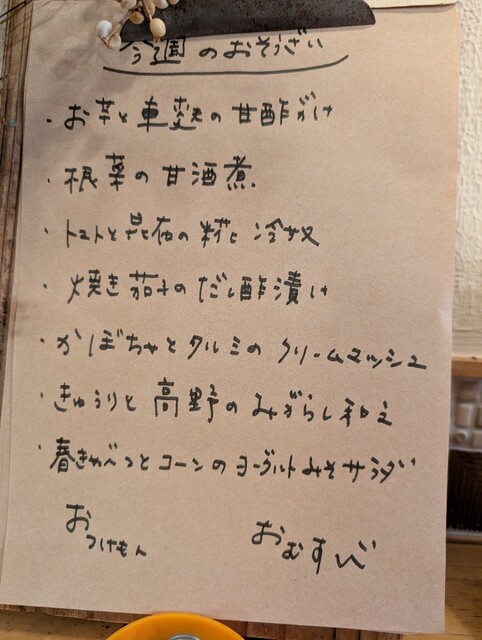 今週のおそうざい
・お芋と車麩の甘酢がけ
・根菜の甘酒煮
・トマトと昆布の糀冷奴
・焼き茄子のだし酢漬け
・かぼちゃとクルミのクリームマッシュ
・きゅうりと高野のみがらし和え
・春きゃべつとコーンのヨーグルトみそサラダ
おつけもん
おむすび